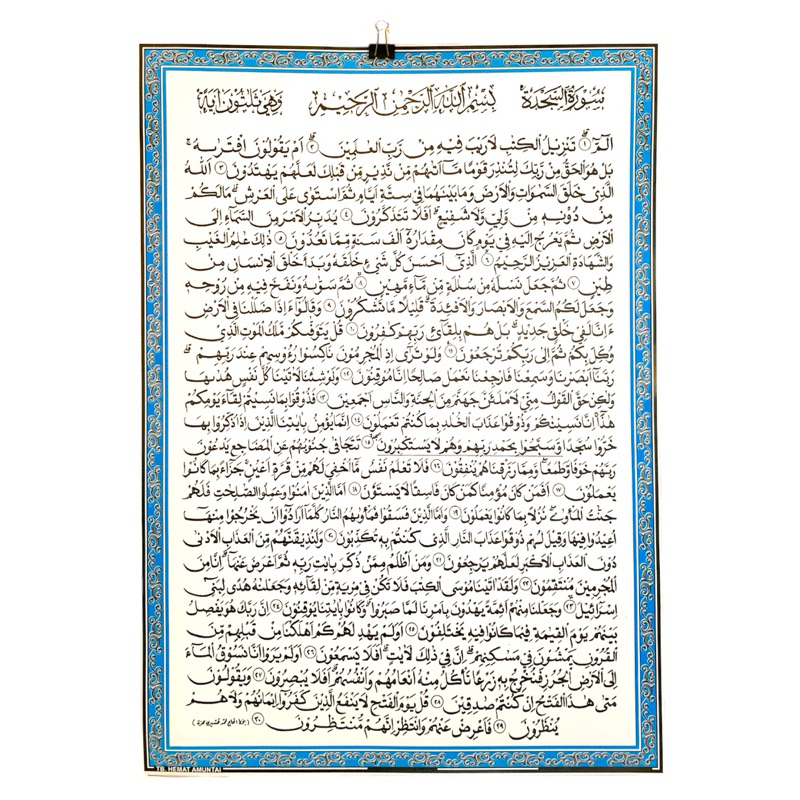 سورة السجدة بسم الله الرحمن الرحيم وهي ثلثون آية
الٓمّٓ ١ تنزيل الكتب لا ريب فيه من رب العلمين ٢ ام يقولون افترىه
بل هو الحق من ربك لتنذر قوما مآ اتىهم من نذير من قبلك لعلهم يهتدون ٣ الله
الذي خلق السموات والارض وما بينهما في ستة ايام ثم استوى على العرش مالكم
من دونه من ولي ولا شفيع افلا تتذكرون ٤ يدبر الامر من السمآء الى
الارض ثم يعرج اليه في يوم كان مقداره الف سنة مما تعدون ٥ ذلك علم الغيب
والشهادة العزيز الرحيم ٦ الذي احسن كل شيء خلقه وبدا خلق الانسان من
طين ٧ ثم جعل نسله من سللة من مآء مهين ٨ ثم سوىه ونفخ فيه من روحه
وجعل لكم السمع والابصار والافئدة قليلا ما تشكرون ٩ وقالوٓا ءاذا ضللنا في الارض
ءانا لفي خلق جديد بل هم بلقآئ ربهم كفرون ١٠ قل يتوفىكم ملك الموت الذي
وكل بكم ثم الى ربكم ترجعون ١١ ولو ترىٓ اذ المجرمون ناكسوا رءوسهم عند ربهم
ربنآ ابصرنا وسمعنا فارجعنا نعمل صالحا انا موقنون ١٢ ولو شئنا لاتينا كل نفس هدىها
ولكن حق القول مني لاملئن جهنم من الجنة والناس اجمعين ١٣ فذوقوا بما نسيتم لقآء يومكم
هذا انا نسينكم وذوقوا عذاب الخلد بما كنتم تعملون ١٤ انما يؤمن بايتنا الذين اذا ذكروا بها
خروا سجدا وسبحوا بحمد ربهم وهم لا يستكبرون ١٥ تتجافى جنوبهم عن المضاجع يدعون
ربهم خوفا وطمعا ومما رزقناهم ينفقون ١٦ فلا تعلم نفس مآ اخفي لهم من قرة اعين جزآء بما كانوا
يعملون ١٧ افمن كان مؤمنا كمن كان فاسقا لا يستون ١٨ اما الذين امنوا وعملوا الصلحت فلهم
جنت المأوى نزلا بما كانوا يعملون ١٩ واما الذين فسقوا فمأوىهم النار كلمآ ارادوٓا ان يخرجوا منهآ
اعيدوا فيها وقيل لهم ذوقوا عذاب النار الذي كنتم به تكذبون ٢٠ ولنذيقنهم من العذاب الادنى
دون العذاب الاكبر لعلهم يرجعون ٢١ ومن اظلم ممن ذكر بايت ربه ثم اعرض عنها انا من
المجرمين منتقمون ٢٢ ولقد اتينا موسى الكتب فلا تكن في مرية من لقآئه وجعلنه هدى لبني
اسرآئيل ٢٣ وجعلنا منهم ائمة يهدون بامرنا لما صبروا وكانوا بايتنا يوقنون ٢٤ ان ربك هو يفصل
بينهم يوم القيمة فيما كانوا فيه يختلفون ٢٥ اولم يهد لهم كم اهلكنا من قبلهم من
القرون يمشون في مسكنهم ان في ذلك لايت افلا يسمعون ٢٦ اولم يروا انا نسوق المآء
الى الارض الجرز فنخرج به زرعا تأكل منه انعامهم وانفسهم افلا يبصرون ٢٧ ويقولون
متى هذا الفتح ان كنتم صدقين ٢٨ قل يوم الفتح لا ينفع الذين كفروٓا ايمانهم ولا هم
ينظرون ٢٩ فاعرض عنهم وانتظر انهم منتظرون ٣٠
TB. HEMAT AMUNTAI